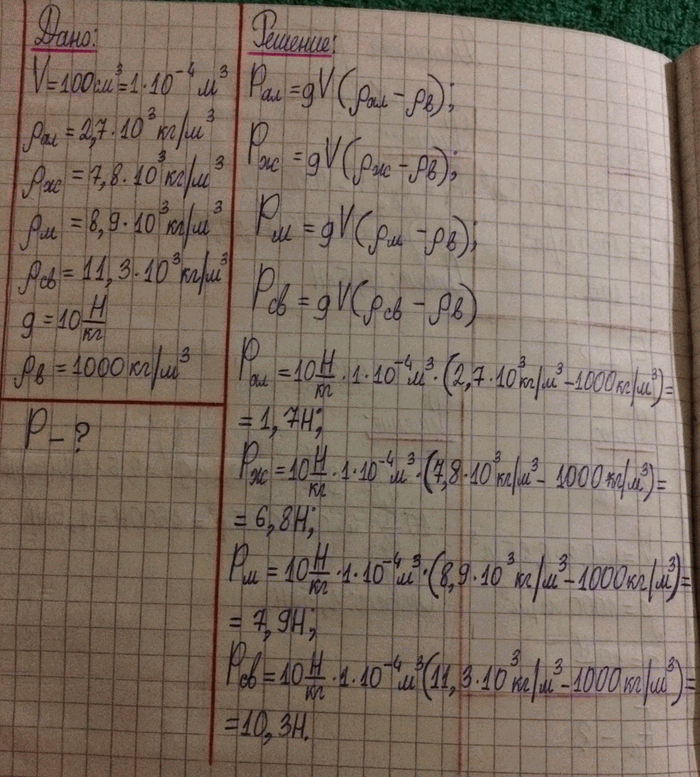 Дано:
V=100см³=1·10⁻⁴ м³
ρал=2,7·10³ кг/м³
ρж=7,8·10³ кг/м³
ρм=8,9·10³ кг/м³
ρсв=11,3·10³ кг/м³
g=10 Н/кг
ρв=1000 кг/м³
P - ?
Решение:
Pал=gV(ρал-ρв);
Pж=gV(ρж-ρв);
Pм=gV(ρм-ρв);
Pсв=gV(ρсв-ρв)
Pал=10 Н/кг·1·10⁻⁴м³·(2,7·10³кг/м³-1000кг/м³)=
=1,7Н;
Pж=10 Н/кг·1·10⁻⁴м³·(7,8·10³кг/м³-1000кг/м³)=
=6,8Н;
Pм=10 Н/кг·1·10⁻⁴м³·(8,9·10³кг/м³-1000кг/м³)=
=7,9Н;
Pсв=10 Н/кг·1·10⁻⁴м³(11,3·10³кг/м³-1000кг/м³)=
=10,3Н.